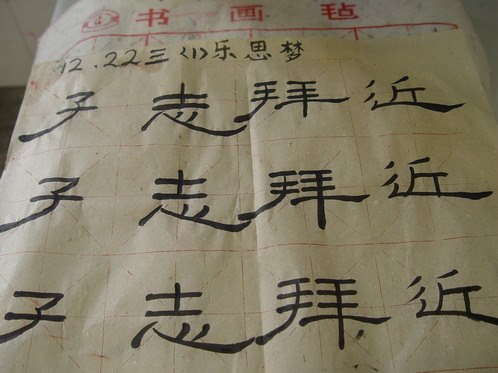 书画毡
12.22三〈1〉乐思梦
子志拜近
子志拜近
子志拜近